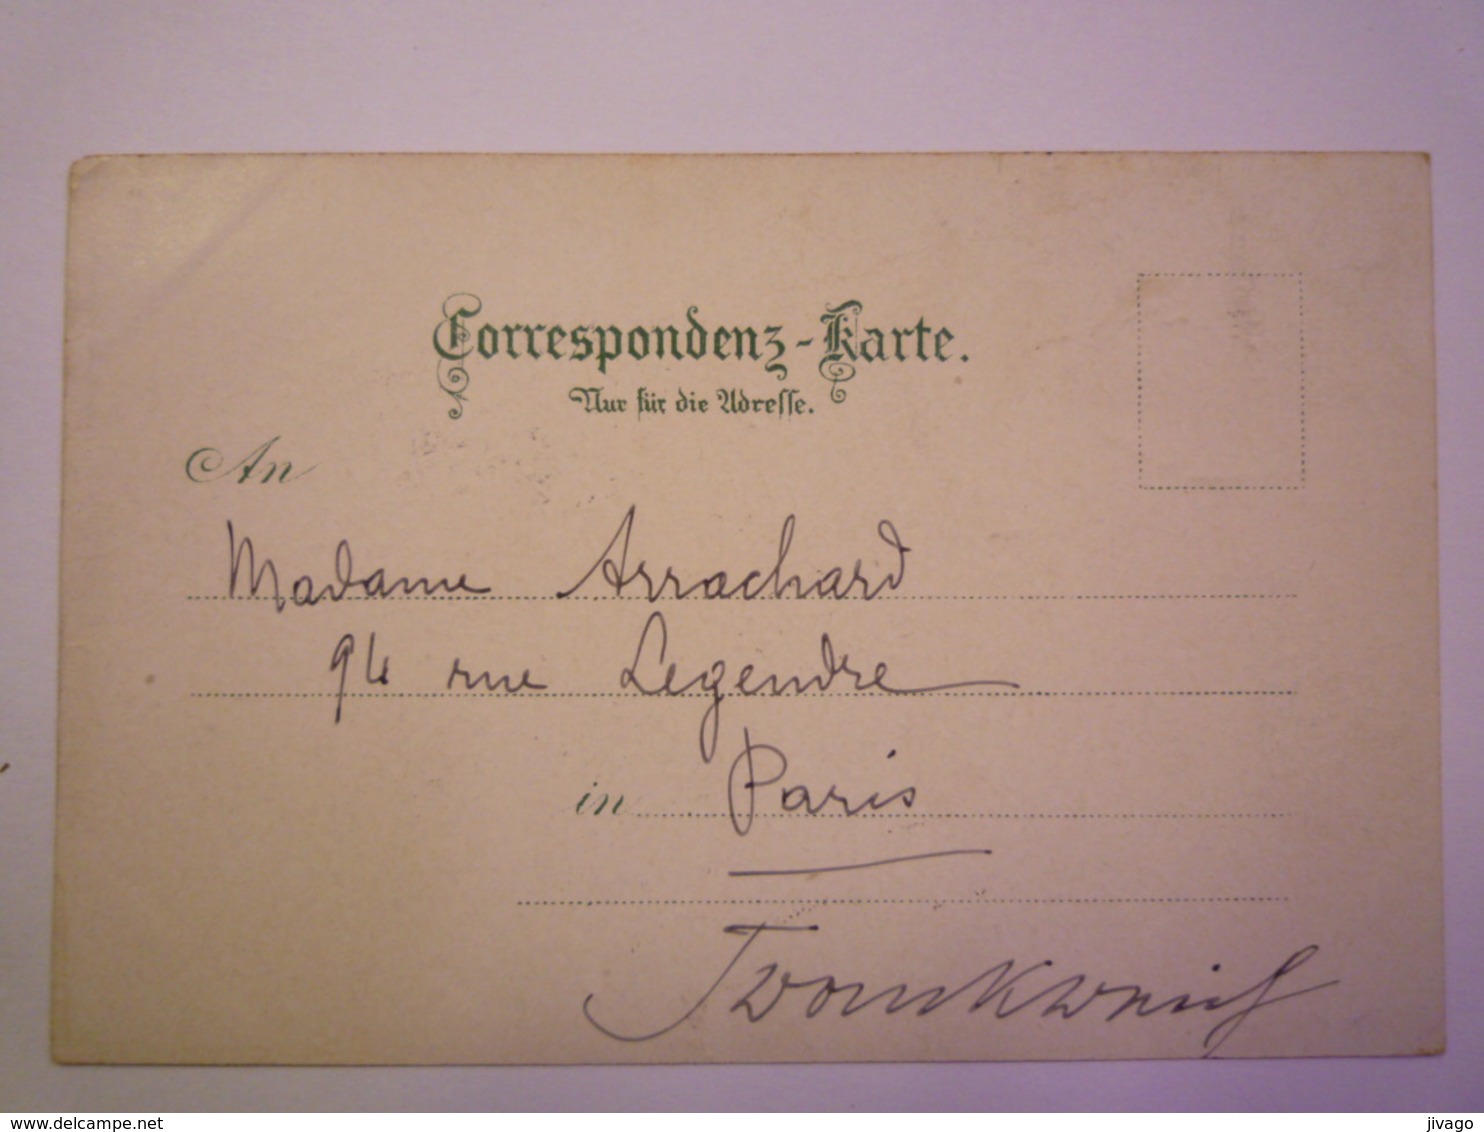 Correspondenz-Karte.
Nur für die Adresse.
An
Madame Arrachard
94 rue Legendre
in Paris
delcampe.net
jivago